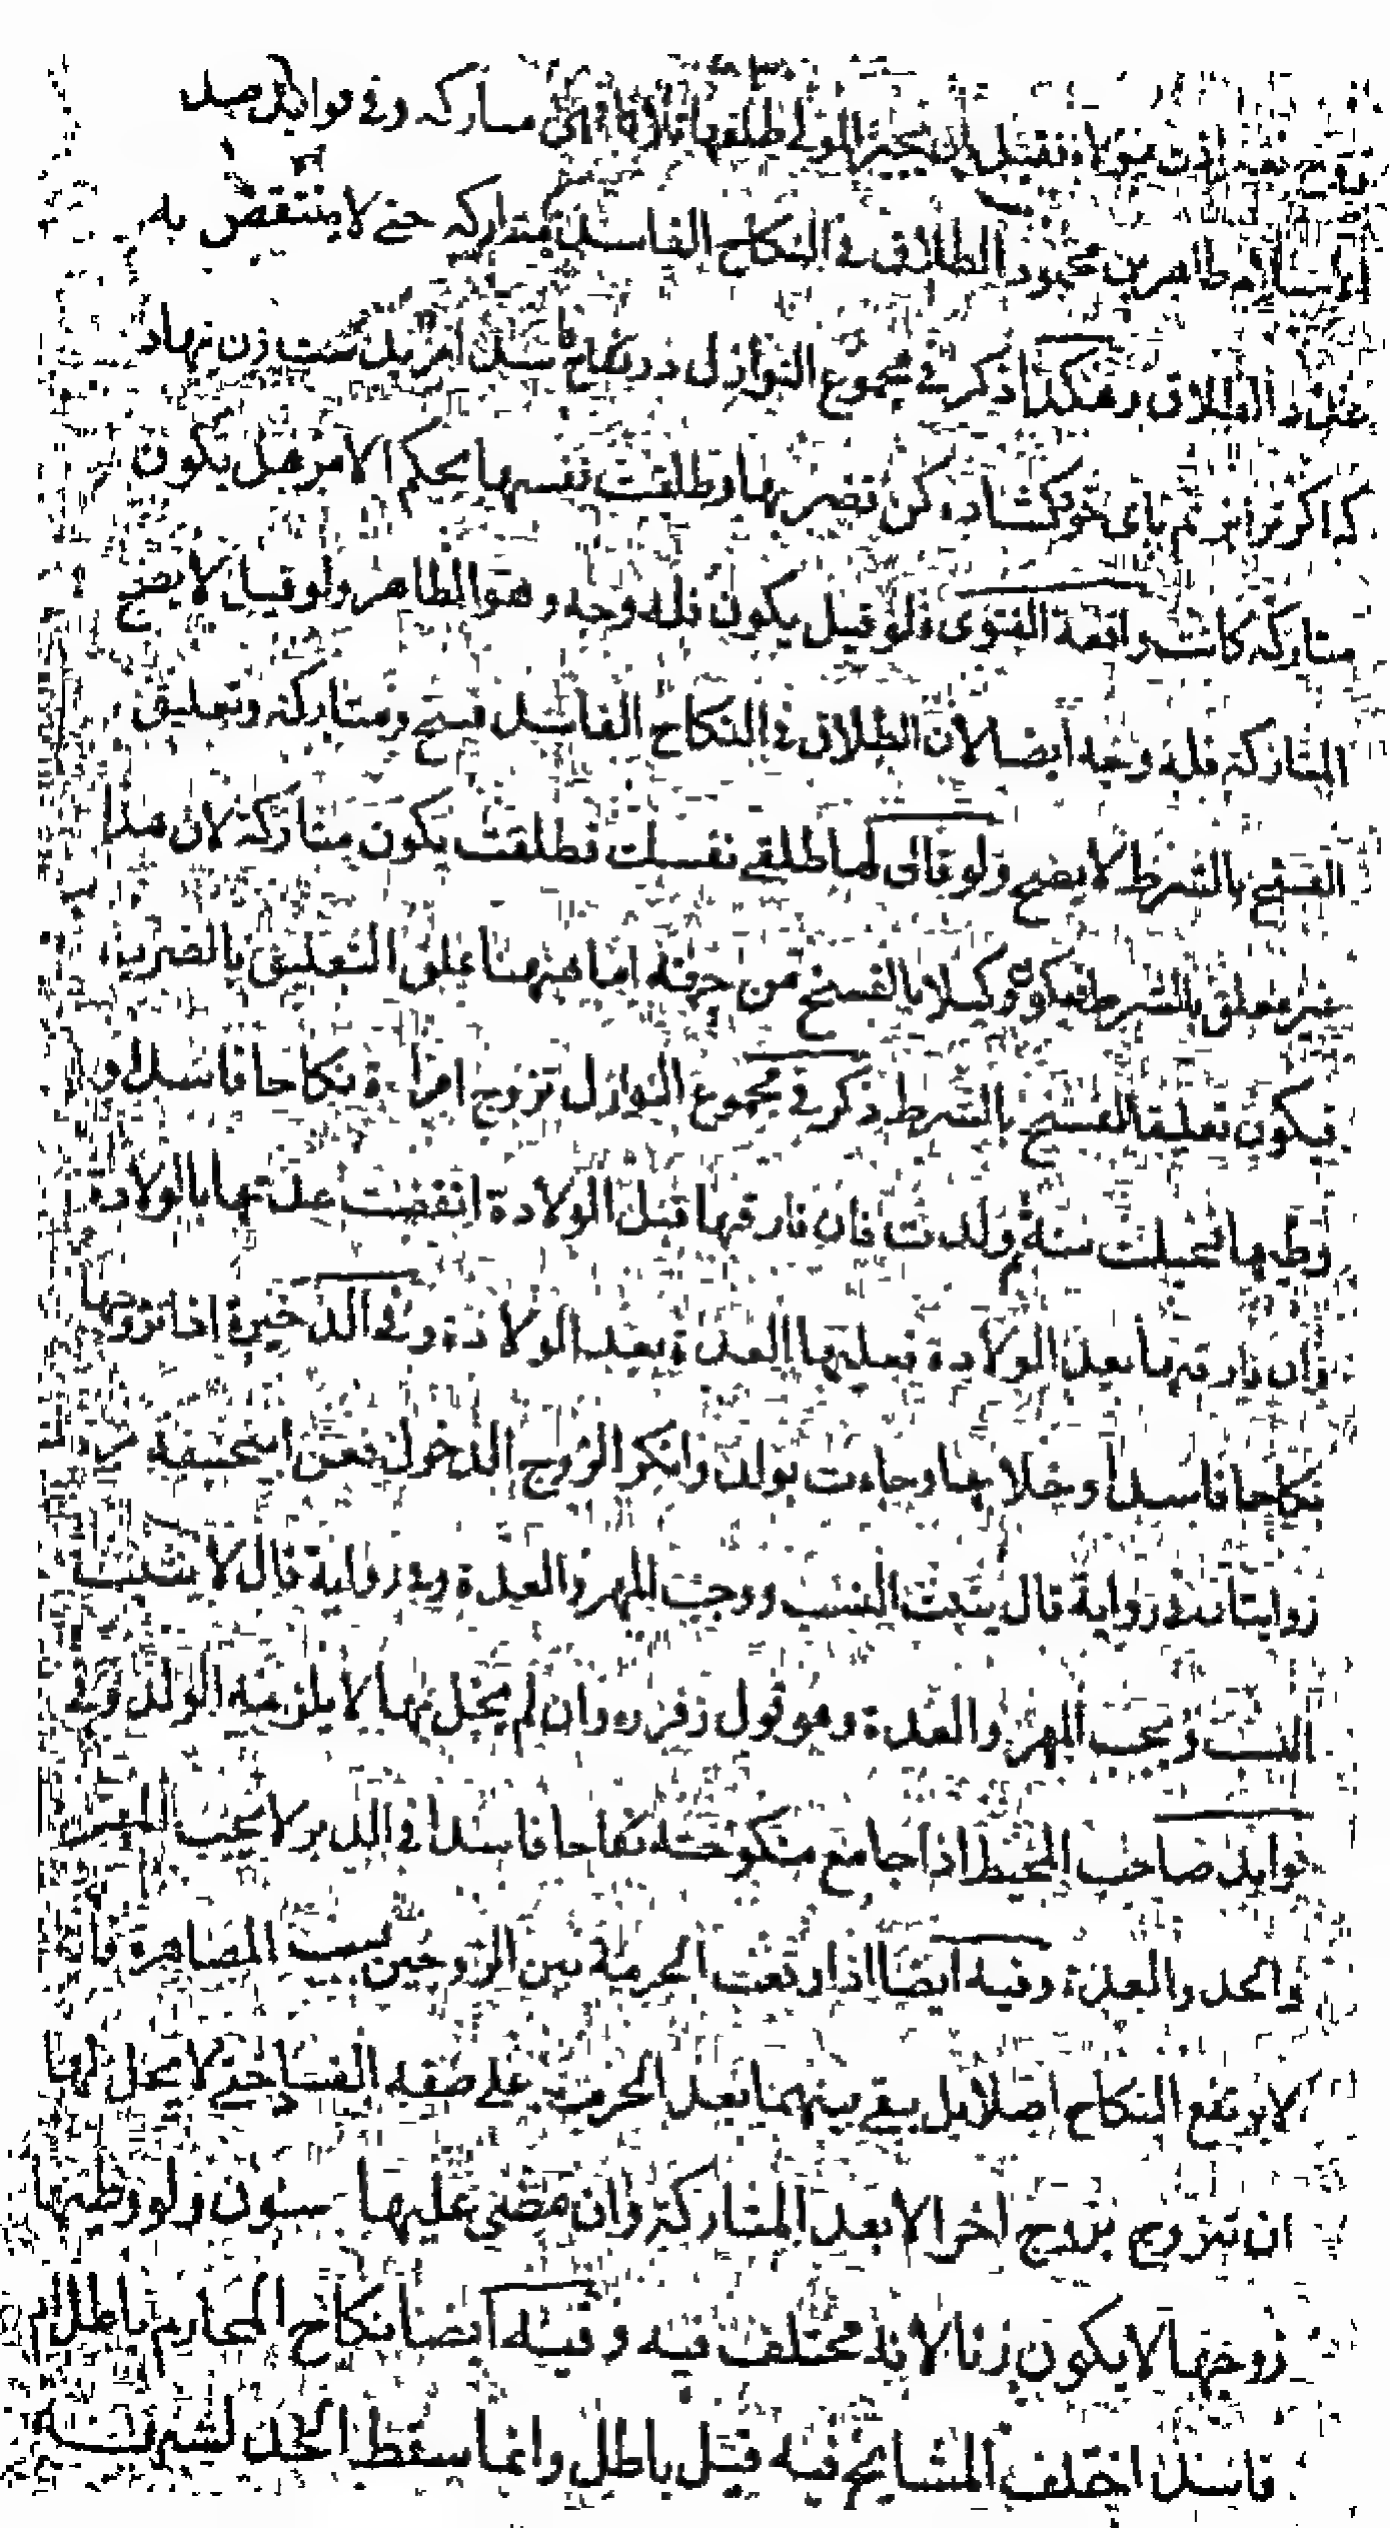 نكاح بغير اذن مولاه فقبل ان يجيز المولى طلقها ثلاثا فهى متاركه وفي فوايد صدر
الاسلام طاهر بن محمود الطلاق في النكاح الفاسد متاركه حتى لا ينتقص به
عدد الطلاق وهكذا ذكر في مجموع النوازل در نكاح فاسد امر بدست زن نهاد
كه اكر ترا بزنم پاى خود كشاده كن فضربها وطلقت نفسها بحكم الامر هل يكون
متاركه كانت واقعة الفتوى ولو قيل يكون فله وجه وهو الظاهر ولو قيل لا يصح
المتاركة فله وجه ايضا لان الطلاق في النكاح الفاسد فسخ ومتاركة وتعليق
الفسخ بالشرط لا يصح ولو قال لها طلقي نفسك فطلقت يكون متاركة لان هذا
غير معلق بالشرط فيكون وكيلا بالفسخ من جهته اما ههنا علق التعليق بالضرب
فيكون تعليق الفسخ بالشرط ذكر في مجموع النوازل تزوج امراة نكاحا فاسدا و
وطيها فحبلت منه ثم ولدت فان فارقها قبل الولادة انقضت عدتها بالولادة
وان فارقها بعد الولادة فعليها العدة بعد الولادة وفي الذخيرة اذا تزوجها
نكاحا فاسدا وخلا بها وجاءت بولد وانكر الزوج الدخول فعن ابي حنيفة
روايتان في رواية قال يثبت النسب ووجب المهر والعدة وفي رواية قال لا يثبت
النسب ويجب المهر والعدة وهو قول زفر ره وان لم يخل بها لا يلزمه الولد وفي
فوايد صاحب المحيط اذا جامع منكوحته نكاحا فاسدا في الدبر لا يجب المهر
والحد والعدة وفيه ايضا اذا وقعت الحرمة بين الزوجين بسبب المصاهرة فانه
لا يرتفع النكاح اصلا بل يبقى بينهما بعد الحرمة على صفة الفساد حتى لا يحل لها
ان تتزوج بزوج اخر الا بعد المتاركة وان مضى عليها سنون ولو وطيها
زوجها لا يكون زنا لانه مختلف فيه وفيه ايضا نكاح المحارم باطل ام
فاسد اختلف المشايخ فيه قيل باطل وانما سقط الحد لشبهة